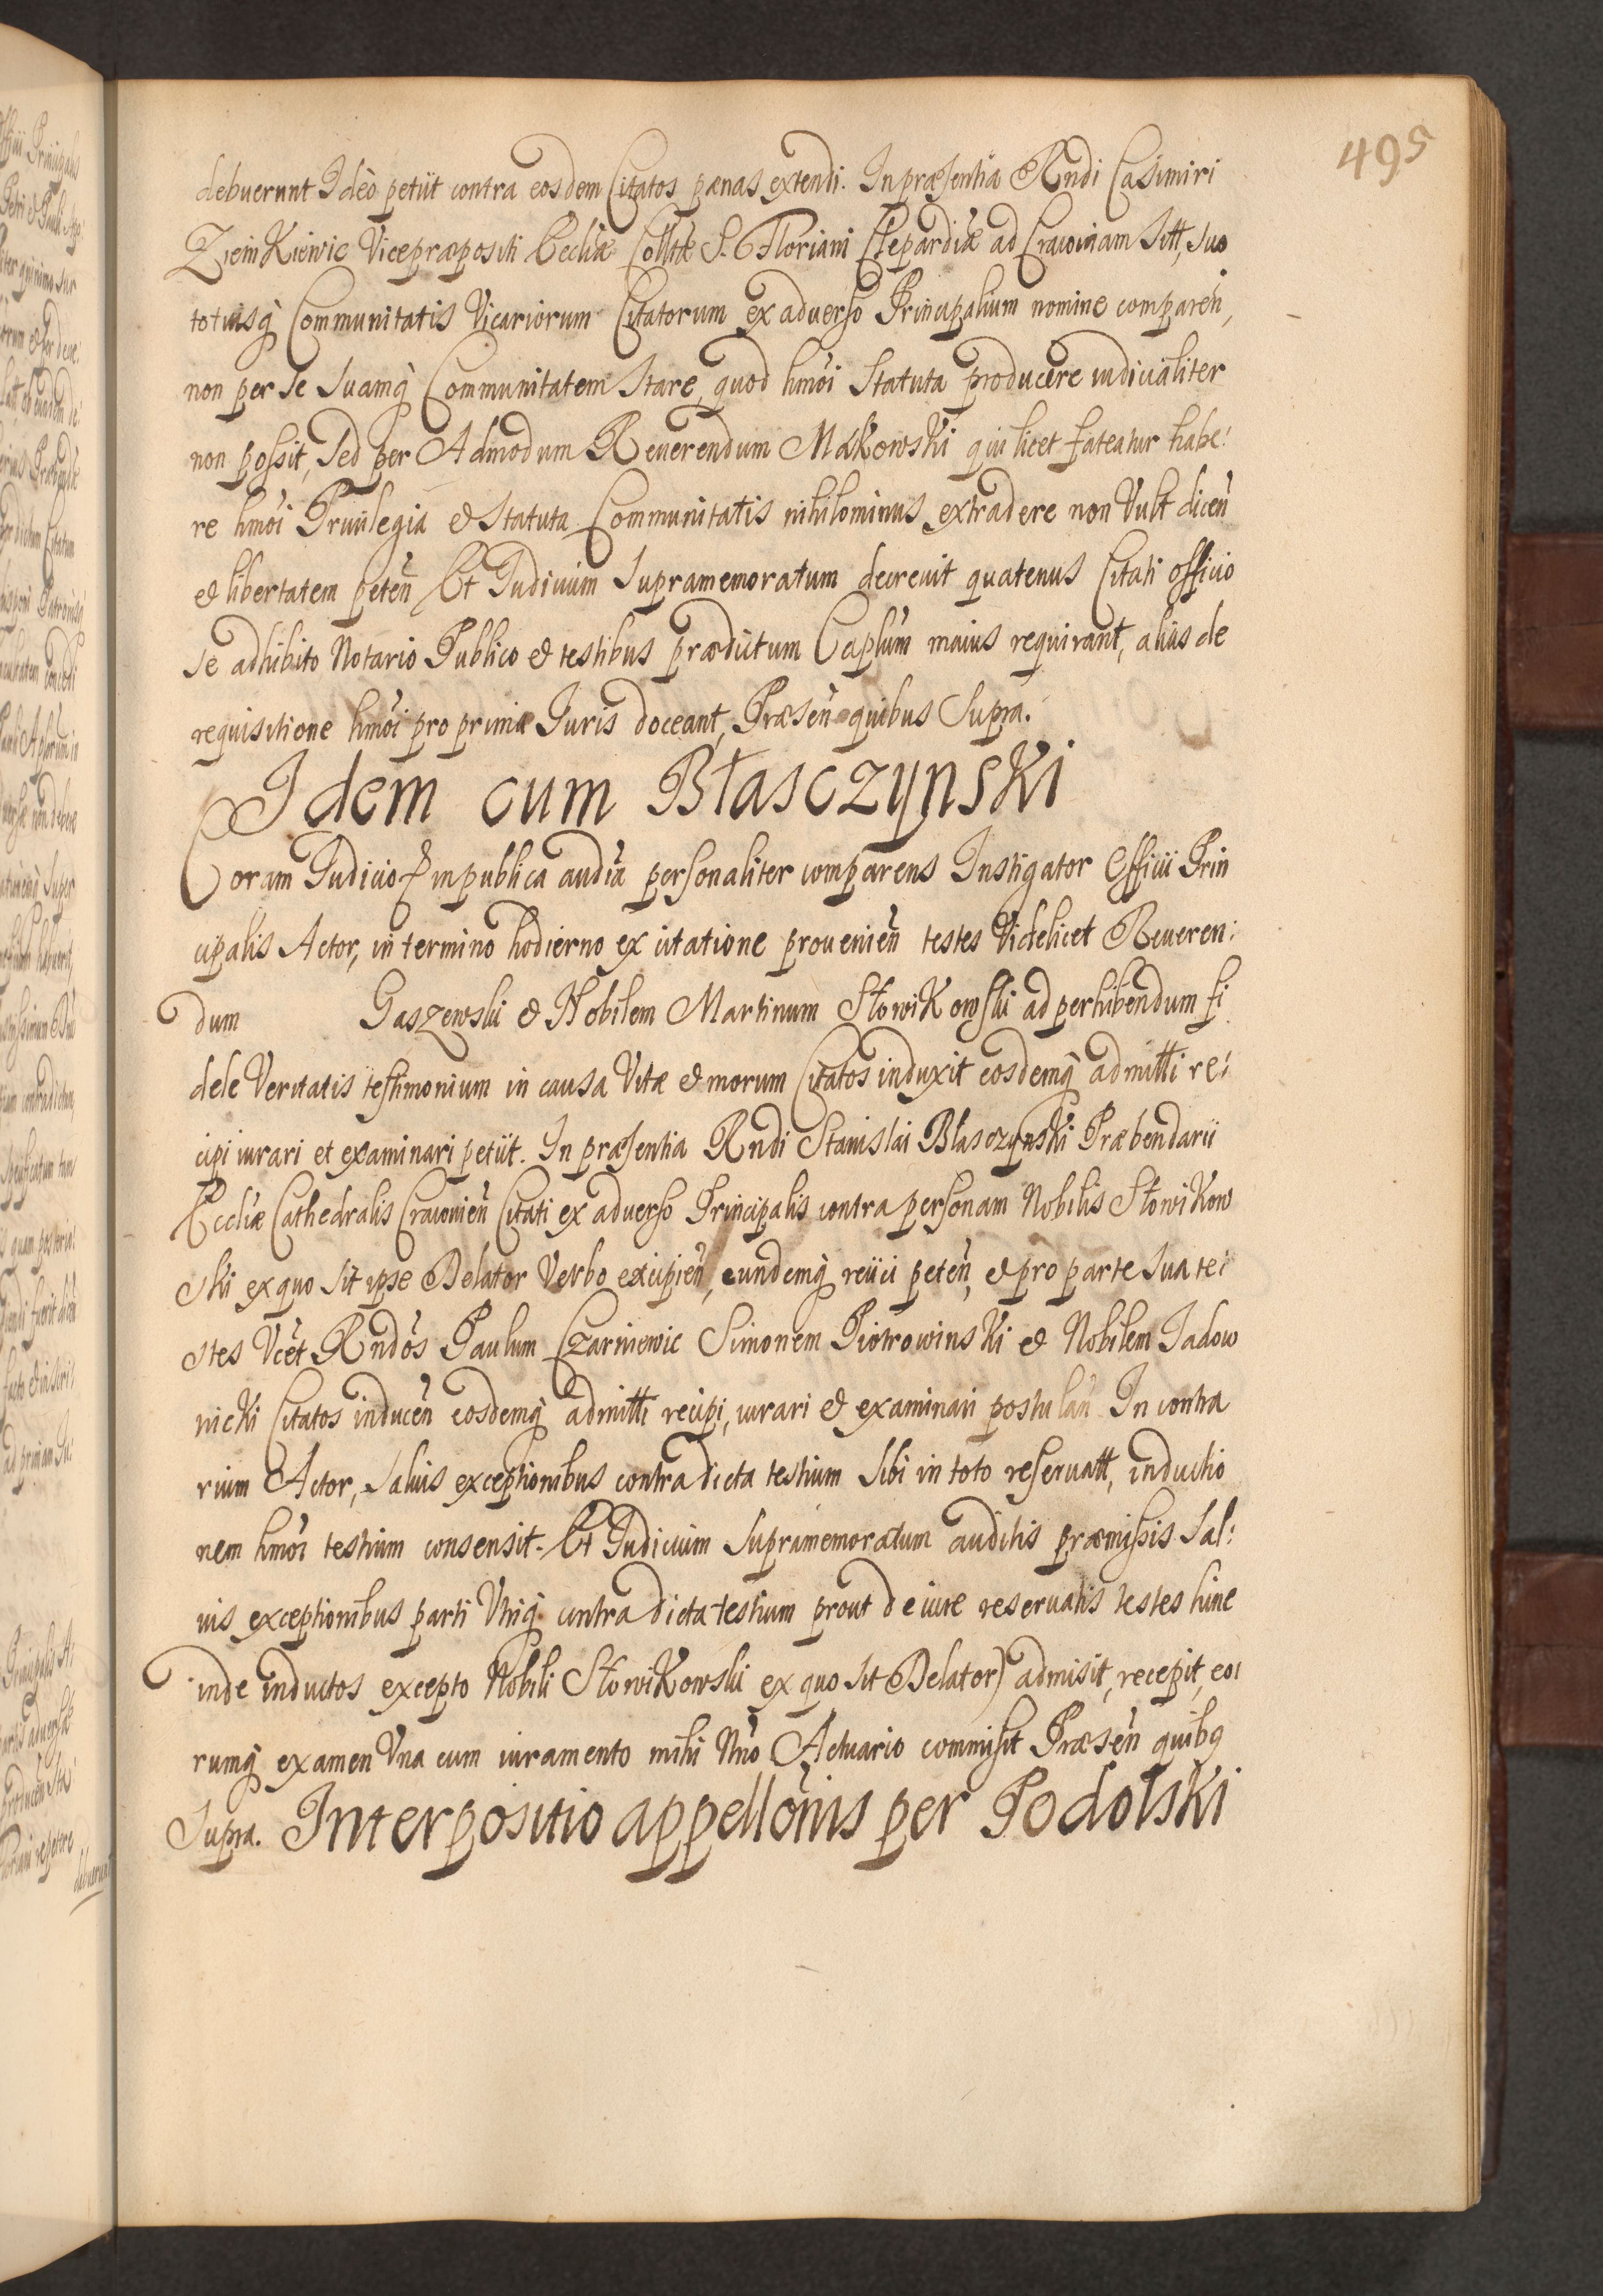 495
debuerunt Ideò petiit contra eosdem Citatos pænas extendi. In præsentia Rndi Casimiri
ZienKiewic Vicepræpositi Eccliæ Collttæ S. Floriani Clepardiæ ad Cracoviam Sitt, suo
totiusq Communitatis Vicariorum Citatorum ex adverso Principalium nomine comparen̄,
non per se suamq̀ Communitatem stare, quod hmōi Statuta producere iudicialiter
non possit, sed per Admodum Reverendum MaKowsKi qui licet fateatur habe:
re hmōi Privilegia & Statuta Communitatis nihilominus extradere non Vult dicen̄
& libertatem peten̄ Et Iudicium supramemoratum decrevit quatenus Citati officio
se adhibito Notario Publico & testibus prædictum Caplūm maius requirant, aliàs de
requisitione hmōi pro prima Iuris doceant, Præsen̄ quibus supra.
Idem cum BłasczynsKi
Coram Iudicio & in publica audīa personaliter comparens Instigator Officii Prin
cipalis Actor, in termino hodierno ex citatione provenien̄ testes Videlicet Reveren:
dum Gaszewski & Nobilem Martinum SłowiKowski ad perhibendum fi
dele Veritatis testimonium in causa Vitæ & morum Citatos induxit eosdemq̀ admitti re:
cipi iurari et examinari petiit. In præsentia Rndi Stanislai BłasczynsKi Præbendarii
Eccliæ Cathedralis Cracovien̄ Citati ex adverso Principalis contra personam Nobilis SłowiKow
ski ex quo sit ipse Delator Verbo excipien̄, eundemq̀ reiici peten̄, & pro parte sua te:
stes Vcēt Rndōs Paulum Czarniewic Simonem PiotrowinsKi & Nobilem Jadow
nicKi Citatos inducen̄ eosdemq̀ admitti recipi, iurari & examinari postulan̄ In contra
rium Actor, salvis exceptionibus contra dicta testium sibi in toto reservatt, inductio
nem hmōi testium consensit. Et Iudicium supramemoratum auditis præmissis sal:
vis exceptionibus parti Vtriq contra dicta testium prout de iure reservatis testes hinc
inde inductos excepto Nobili SłowiKowski ex quo sit Delator) admisit, recepit, eo:
rumq̀ examen Vna cum iuramento mihi Nrīo Actuario commisit Præsen̄ quibq
supra. Interpositio appellōnis per PodolsKi